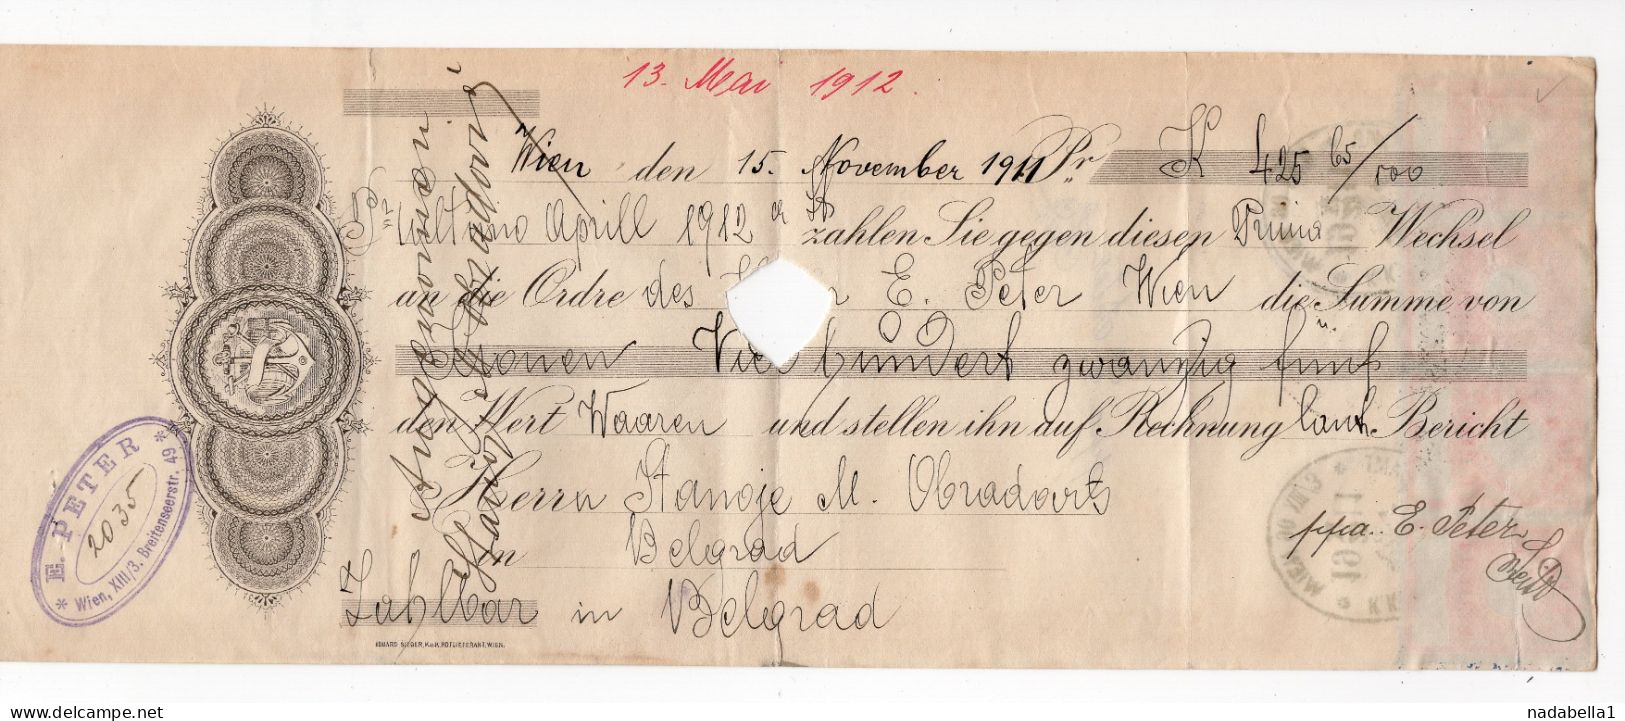 13. Mai 1912.
Wien den 15. November 1911 Pr K 425 65/100
Pr Ultimo Aprill 1912 zahlen Sie gegen diesen Prima Wechsel
an die Ordre des E. Peter Wien die Summe von
Kronen Vierhundert zwanzig u. fünf
den Wert Waaren und stellen ihn auf Rechnung laut Bericht
Herrn Stanoje M. Obradovits
in Belgrad
Zahlbar in Belgrad
ppa. E. Peter
Angenommen
E. PETER
2035
* Wien, XIII/3. Breitenseerstr. 49 *
EDUARD SIEGER, K.u.K. HOFLIEFERANT, WIEN.
delcampe.net
nadabella1